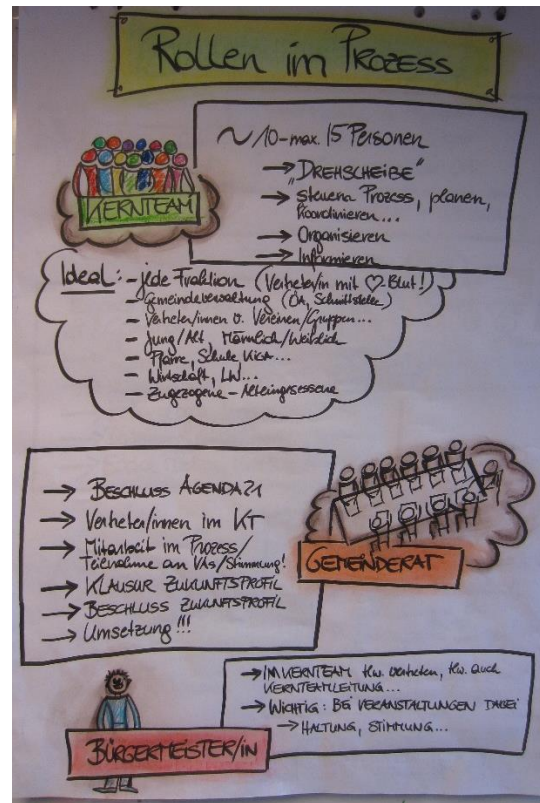 Rollen im Prozess
~ 10-max. 15 Personen
→ „DREHSCHEIBE"
→ steuern Prozess, planen,
koordinieren...
→ Organisieren
→ Informieren
KERNTEAM
Ideal: - jede Fraktion (Vertreter/in mit ♡Blut!)
- Gemeindeverwaltung (ÖA, Schnittstelle)
- Vertreter/innen v. Vereinen/Gruppen...
- Jung/Alt, Männlich/Weiblich
- Pfarre, Schule, KiGA...
- Wirtschaft, LW...
- Zugezogene - Alteingesessene
→ BESCHLUSS AGENDA21
→ Vertreter/innen im KT
→ Mitarbeit im Prozess/
Teilnahme an VAs/Stimmung!
→ KLAUSUR ZUKUNFTSPROFIL
→ BESCHLUSS ZUKUNFTSPROFIL
→ Umsetzung!!!
GEMEINDERAT
→ IM KERNTEAM tlw. vertreten, tlw. auch
KERNTEAMLEITUNG...
→ WICHTIG: BEI VERANSTALTUNGEN DABEI
→ HALTUNG, STIMMUNG...
BÜRGERMEISTER/IN